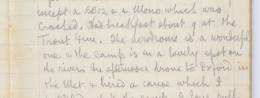 except a BE12 & a Mono which was
crashed. Had breakfast about 9 at the
Trout Inn. The aerodrome is a wonderful
one & the camp is in a lovely spot on
the river. In afternoon drove to Oxford in
the & hired a canoe which I